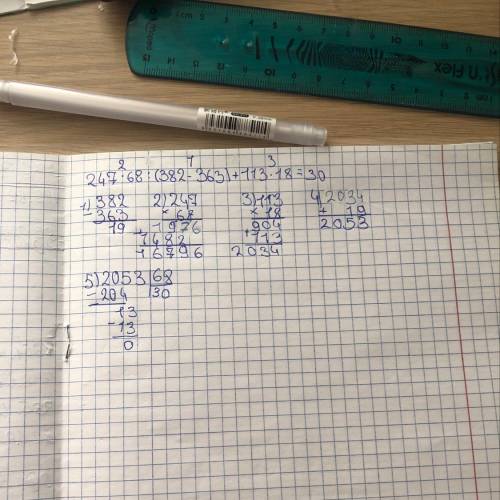 2 1 3
247·68:(382-363)+113·18=30
1) 382 2) 247 3) 113 4) 2034
- 363 × 68 × 18 + 19
19 + 1976 904 2053
1482 + 113
16796 2034
5) 2053 | 68
- 204 | 30
13
- 13
0